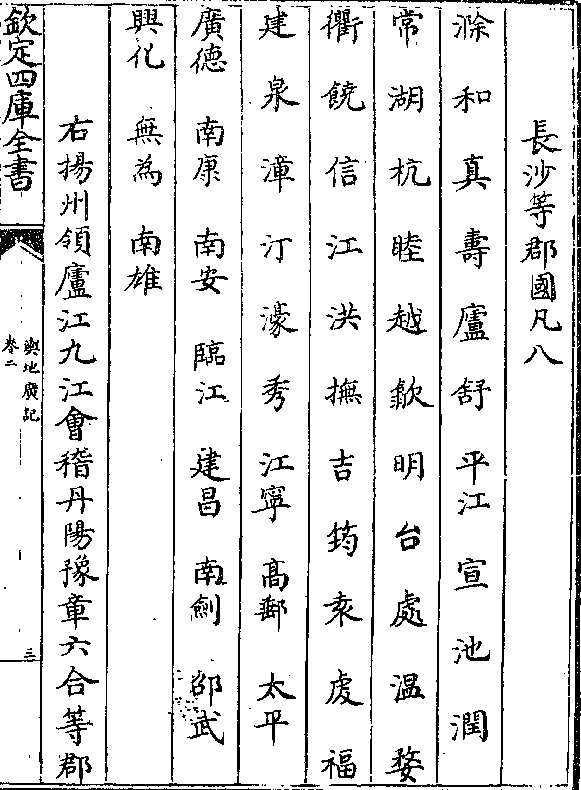 長沙等郡國凡八
滁 和 真 壽 廬 舒 平江 宣 池 潤
常 湖 杭 睦 越 歙 明 台 處 温 婺
衢 饒 信 江 洪 撫 吉 筠 袁 虔 福
建 泉 漳 汀 濠 秀 江寧 髙郵 太平
廣德 南康 南安 臨江 建昌 南劍 邵武
興化 無為 南雄
右揚州領廬江九江會稽丹陽豫章六合等郡
欽定四庫全書
輿地廣記
卷二
三